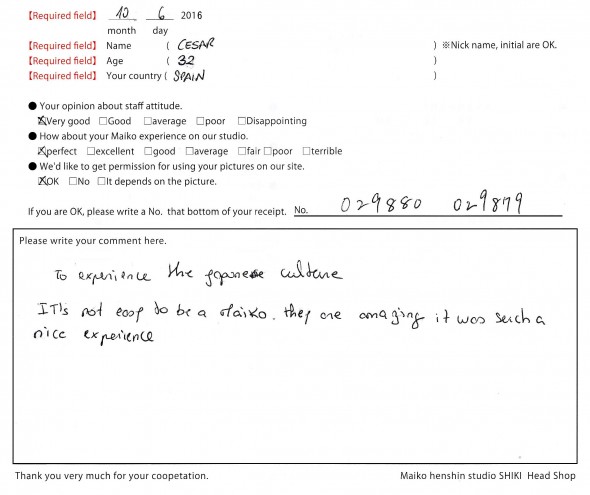 【Required field】 10 6 2016
month day
【Required field】 Name ( CESAR ) ※Nick name, initial are OK.
【Required field】 Age ( 32 )
【Required field】 Your country ( SPAIN )
● Your opinion about staff attitude.
☒Very good □Good □average □poor □Disappointing
● How about your Maiko experience on our studio.
☒perfect □excellent □good □average □fair □poor □terrible
● We'd like to get permission for using your pictures on our site.
☒OK □No □It depends on the picture.
If you are OK, please write a No. that bottom of your receipt. No. 029880 029879
Please write your comment here.
To experience the japanese culture
IT's not easy to be a Maiko. they are amazing it was such a
nice experience
Thank you very much for your coopetation. Maiko henshin studio SHIKI Head Shop